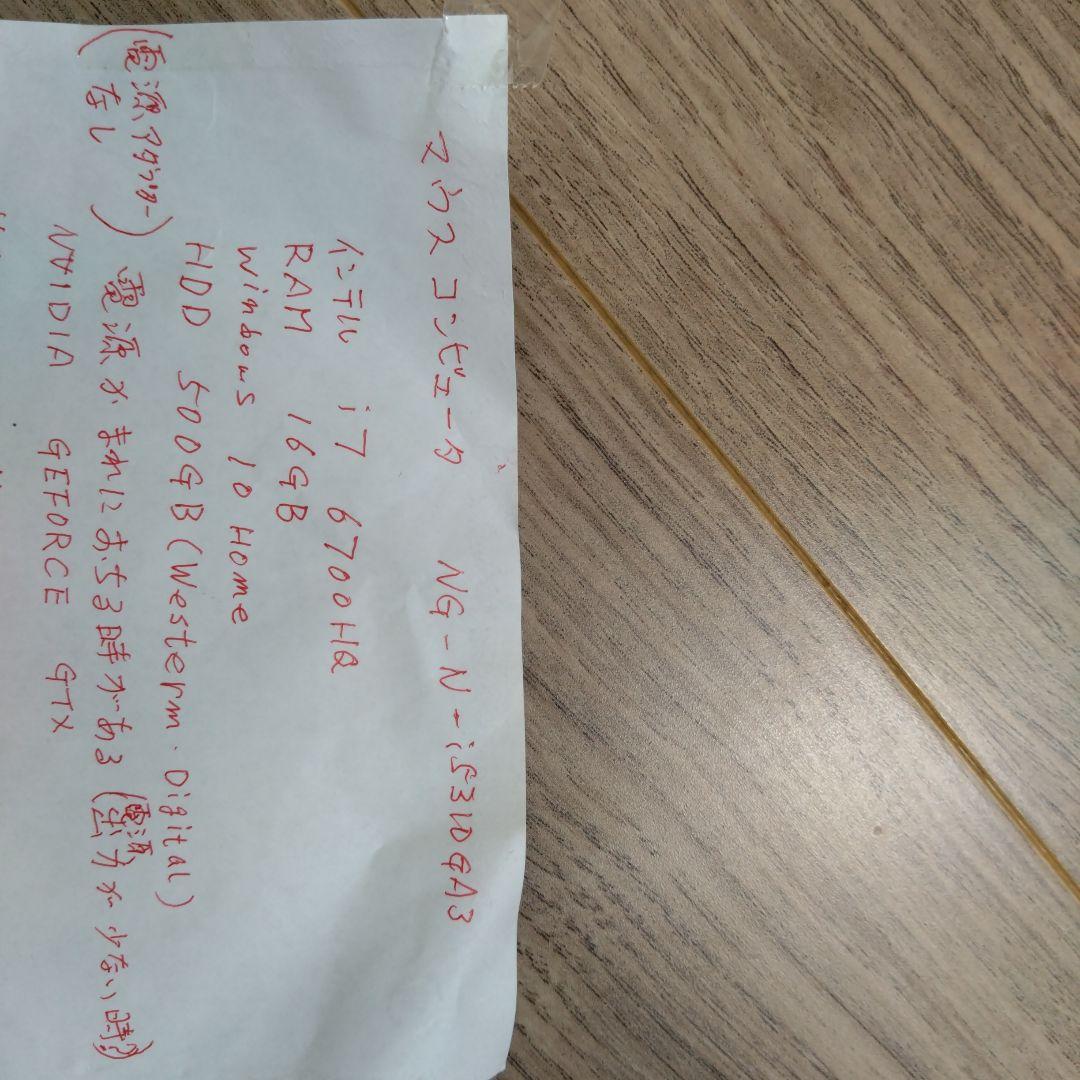 マウスコンピュータ NG-N-i5310GA3
インテル i7 6700HQ
RAM 16GB
Windows 10 Home
HDD 500GB (Westerm.Digital)
(電源アダプター なし) 電源がまれにおちる時がある (電源 出力が少ない時?)
NVIDIA GEFORCE GTX